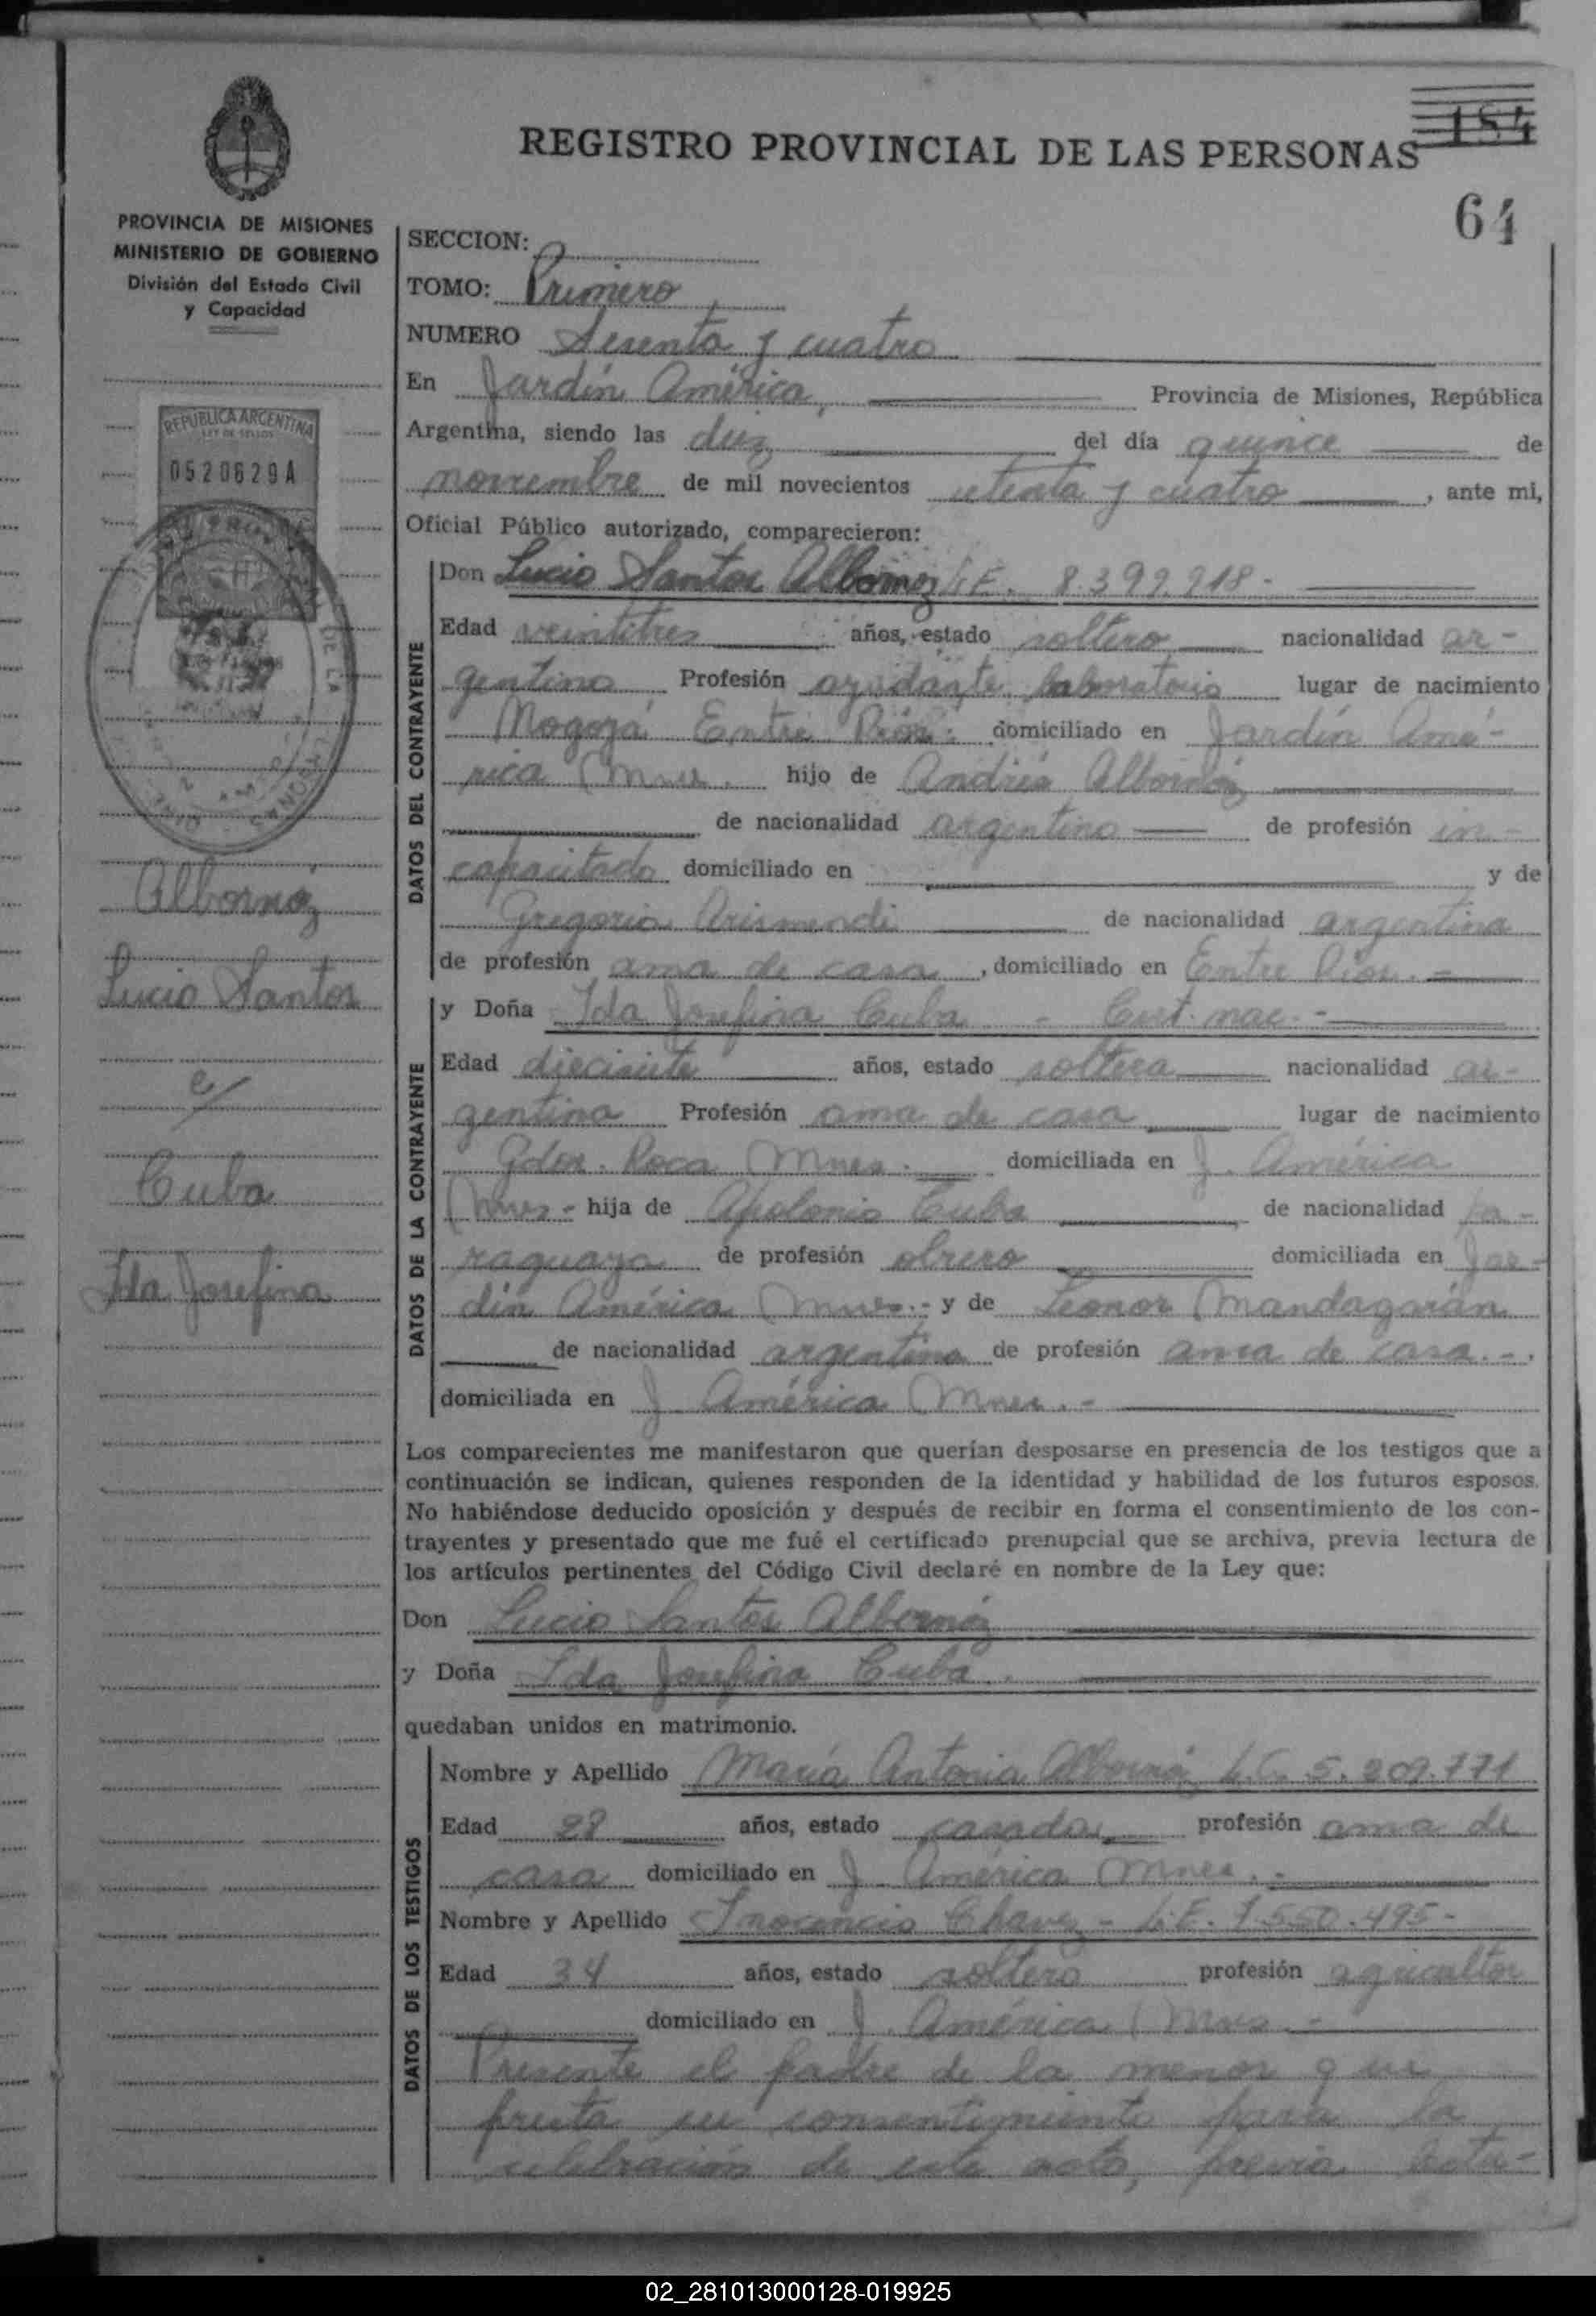 REGISTRO PROVINCIAL DE LAS PERSONAS
184
64
PROVINCIA DE MISIONES
MINISTERIO DE GOBIERNO
División del Estado Civil
y Capacidad
REPUBLICA ARGENTINA
LEY DE SELLOS
0520629A
Albornóz
Lucio Santos
c/
Cuba
Ida Josefina
SECCION:
TOMO: Primero
NUMERO Sesenta y cuatro
En Jardín América, Provincia de Misiones, República
Argentina, siendo las diez del día quince de
noviembre de mil novecientos setenta y cuatro, ante mi,
Oficial Público autorizado, comparecieron:
DATOS DEL CONTRAYENTE
Don Lucio Santos Albornoz L.E. 8.399.218.-
Edad veintitres años, estado soltero nacionalidad ar-
gentino Profesión ayudante laboratorio lugar de nacimiento
Nogoyá Entre Ríos. domiciliado en Jardín Amé-
rica Mnes. hijo de Andrés Albornóz
de nacionalidad argentino de profesión in-
capacitado domiciliado en y de
Gregoria Arismendi de nacionalidad argentina
de profesión ama de casa, domiciliado en Entre Ríos.-
DATOS DE LA CONTRAYENTE
y Doña Ida Josefina Cuba - Cert. nac.-
Edad diecisiete años, estado soltera nacionalidad ar-
gentina Profesión ama de casa lugar de nacimiento
Gdor. Roca Mnes. domiciliada en J. América
Mnes- hija de Apolonio Cuba de nacionalidad pa-
raguaya de profesión obrero domiciliada en Jar-
dín América Mnes.- y de Leonor Mandagarán
de nacionalidad argentina de profesión ama de casa.-.
domiciliada en J. América Mnes.-
Los comparecientes me manifestaron que querían desposarse en presencia de los testigos que a
continuación se indican, quienes responden de la identidad y habilidad de los futuros esposos.
No habiéndose deducido oposición y después de recibir en forma el consentimiento de los con-
trayentes y presentado que me fué el certificado prenupcial que se archiva, previa lectura de
los artículos pertinentes del Código Civil declaré en nombre de la Ley que:
Don Lucio Santos Albornóz
y Doña Ida Josefina Cuba.
quedaban unidos en matrimonio.
DATOS DE LOS TESTIGOS
Nombre y Apellido María Antonia Albornóz L.C. 5.209.771
Edad 28 años, estado casada profesión ama de
casa domiciliado en J. América Mnes.-
Nombre y Apellido Inocencio Chavez - L.E. 7.550.495-
Edad 34 años, estado soltero profesión agricultor
domiciliado en J. América Mnes.-
Presente el padre de la menor que
presta su consentimiento para la
celebración de este acto, previa lectu-
02_281013000128-019925